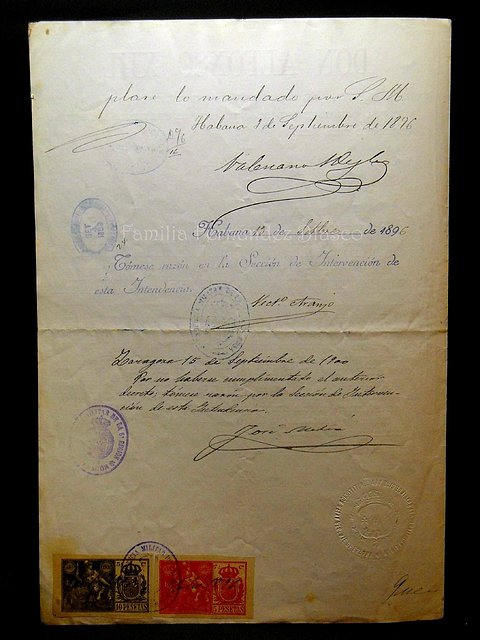 DON ALFONSO XIII
plase lo mandado por S. M.
Habana 2 de Septiembre de 1896
Valeriano Weyler
Familia Fernández Blasco
Habana 12 de Septiembre de 1896
Tómese razón en la Sección de Intervención de
esta Intendencia.
Araujo
Zaragoza 15 de Septiembre de 1900
Por no haberse cumplimentado el anterior
decreto, tómese razón por la Sección de Interven-
ción de esta Intendencia.
José
10 PESETAS
5 PESETAS